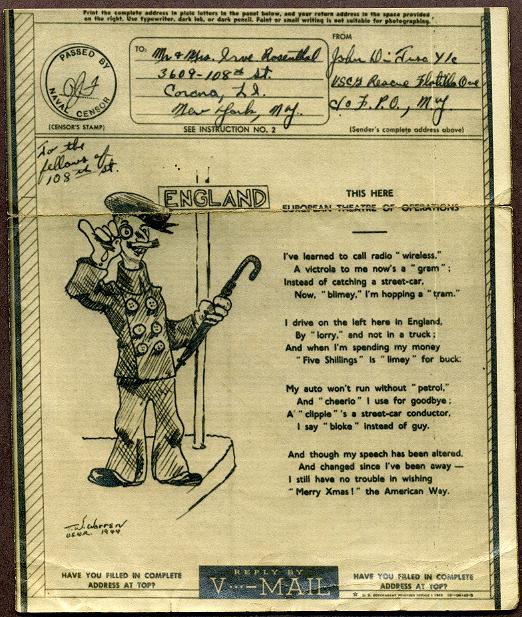 Print the complete address in plain letters in the panel below, and your return address in the space provided
on the right. Use typewriter, dark ink, or dark pencil. Faint or small writing is not suitable for photographing.
PASSED BY
NAVAL CENSOR
(CENSOR'S STAMP)
TO:
Mr & Mrs. Irve Rosenthal
3609-108th St.
Corona, L.I.
New York, N.Y.
SEE INSTRUCTION NO. 2
FROM
John Di Fusco Y1c
USCG Rescue Flotilla One
c/o F.P.O., N.Y.
(Sender's complete address above)
To the
fellows of
108th St.
ENGLAND
THIS HERE
EUROPEAN THEATRE OF OPERATIONS
I've learned to call radio "wireless,"
A victrola to me now's a "gram";
Instead of catching a street-car,
Now, "blimey," I'm hopping a "tram."
I drive on the left here in England,
By "lorry," and not in a truck;
And when I'm spending my money
"Five Shillings" is "limey" for buck.
My auto won't run without "petrol,"
And "cheerio" I use for goodbye;
A "clippie" 's a street-car conductor,
I say "bloke" instead of guy.
And though my speech has been altered,
And changed since I've been away—
I still have no trouble in wishing
"Merry Xmas!" the American Way.
T.W. Warren
USNR. 1944
HAVE YOU FILLED IN COMPLETE
ADDRESS AT TOP?
REPLY BY
V···—MAIL
HAVE YOU FILLED IN COMPLETE
ADDRESS AT TOP?